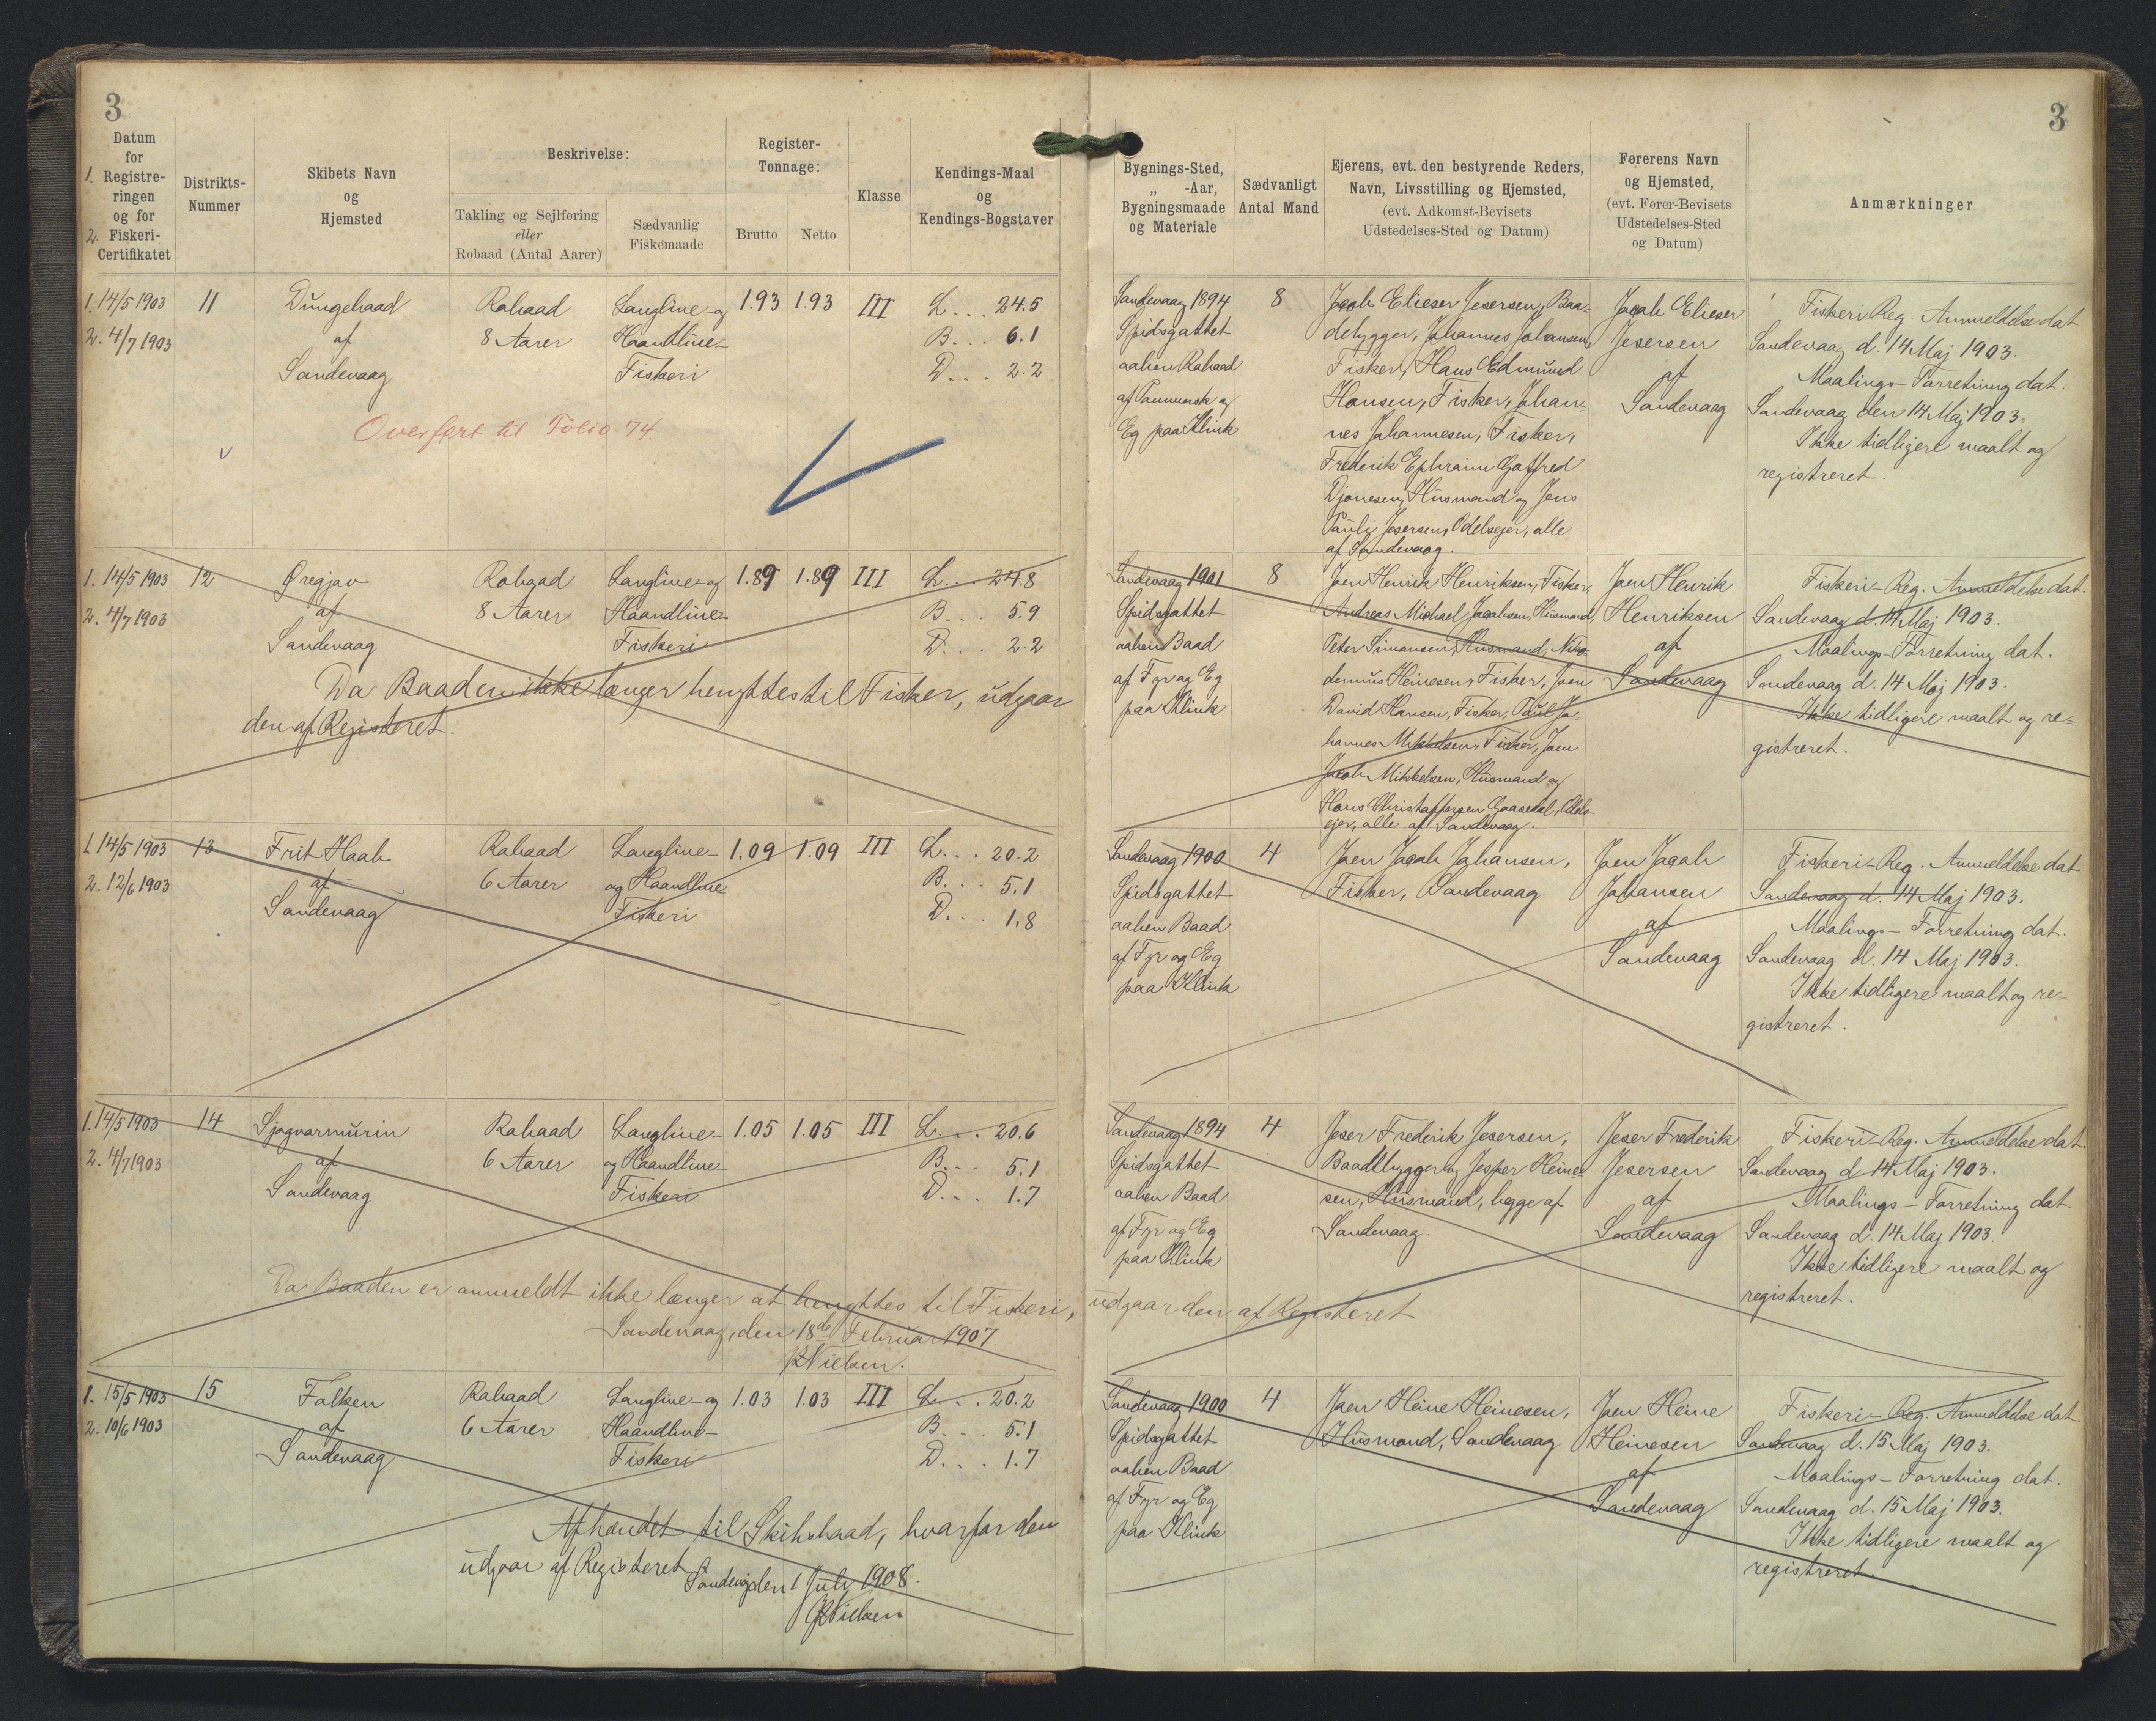 3
Datum
for
1. Registre-
ringen
og for
2. Fiskeri-
Certifikatet
Distrikts-
Nummer
Skibets Navn
og
Hjemsted
Beskrivelse:
Takling og Sejlføring
eller
Robaad (Antal Aarer)
Sædvanlig
Fiskemaade
Register-
Tonnage:
Brutto
Netto
Klasse
Kendings-Maal
og
Kendings-Bogstaver
1. 14/5 1903
2. 4/7 1903
11
af
Sandevaag
Robaad
8 Aarer
Langline- og
Haandline-
Fiskeri
1.93
1.93
III
L... 24.5
B... 6.1
D... 2.2
Overført til Folio 74
1. 14/5 1903
2. 4/7 1903
12
Øregjav
af
Sandevaag
Robaad
8 Aarer
Langline- og
Haandline-
Fiskeri
1.89
1.89
III
L... 24.8
B... 5.9
D... 2.2
Da Baaden ikke længer benyttes til Fisker, udgaar
den af Registeret.
1. 14/5 1903
2. 12/6 1903
13
Frit Haab
af
Sandevaag
Robaad
6 Aarer
Langline-
og Haandline
Fiskeri
1.09
1.09
III
L... 20.2
B... 5.1
D... 1.8
1. 14/5 1903
2. 4/7 1903
14
Sjogvarmurin
af
Sandevaag
Robaad
6 Aarer
Langline-
og Haandline-
Fiskeri
1.05
1.05
III
L... 20.6
B... 5.1
D... 1.7
Da Baaden er anmeldt ikke længer at benyttes til Fiskeri, udgaar den af Registeret
Sandevaag, den 18de Februar 1907
Nielsen.
1. 15/5 1903
2. 10/6 1903
15
Falken
af
Sandevaag
Robaad
6 Aarer
Langline- og
Haandline-
Fiskeri
1.03
1.03
III
L... 20.2
B... 5.1
D... 1.7
Afhændet til Skibsbaad, hvorfor den
udgaar af Registeret
den 1 July 1908.
Nielsen
3
Bygnings-Sted,
„ -Aar,
Bygningsmaade
og Materiale
Sædvanligt
Antal Mand
Ejerens, evt. den bestyrende Reders,
Navn, Livsstilling og Hjemsted,
(evt. Adkomst-Bevisets
Udstedelses-Sted og Datum)
Førerens Navn
og Hjemsted,
(evt. Fører-Bevisets
Udstedelses-Sted
og Datum)
Anmærkninger
Sandevaag 1894
Spidsgattet
aaben Robaad
af og
Eg paa Klink
8
Jacob Elieser Jesersen, Baa-
debygger, Johannes Johansen,
Fisker, Hans Edmund
Hansen, Fisker, Johan-
nes Johannesen, Fisker,
Frederik Ephraim Gotfred
Djonesen, Husmand og Jens
Pauli Jesersen, Odelsejer, alle
af Sandevaag.
Jacob Elieser
Jesersen
af
Sandevaag
Fiskeri Reg. Anmeldelse dat
Sandevaag d. 14 Maj 1903.
Maalings-Forretning dat.
Sandevaag den 14 Maj 1903.
Ikke tidligere maalt og
registreret.
Sandevaag 1901
Spidsgattet
aaben Baad
af Fyr og Eg
paa Klink
8
Joen Henrik Henriksen, Fisker,
Andreas Michael Jacobsen, Husmand,
Peter Simonsen, Husmand, Niko-
demus Heinesen, Fisker, Joen
David Hansen, Fisker, Poul Jo-
hannes Mikkelsen, Fisker, Joen
Jacob Mikkelsen, Husmand og
Hans Christoffersen Gaasedal, Odels-
ejer, alle af Sandevaag.
Joen Henrik
Henriksen
af
Sandevaag
Fiskeri-Reg. Anmeldelse dat.
Sandevaag d. 14 Maj 1903.
Maalings-Forretning dat.
Sandevaag d. 14 Maj 1903.
Ikke tidligere maalt og re-
gistreret.
Sandevaag 1900
Spidsgattet
aaben Baad
af Fyr og Eg
paa Klink
4
Joen Jacob Johansen,
Fisker, Sandevaag
Joen Jacob
Johansen
af
Sandevaag
Fiskeri-Reg. Anmeldelse dat
Sandevaag d. 14 Maj 1903.
Maalings-Forretning dat.
Sandevaag d. 14 Maj 1903.
Ikke tidligere maalt og re-
gistreret.
Sandevaag 1894
Spidsgattet
aaben Baad
af Fyr og Eg
paa Klink
4
Jeser Frederik Jesersen,
Baadebygger og Jesper Heine-
sen, Husmand, begge af
Sandevaag.
Jeser Frederik
Jesersen
af
Sandevaag
Fiskeri-Reg. Anmeldelse dat
Sandevaag d 14 Maj 1903.
Maalings-Forretning dat.
Sandevaag d. 14 Maj 1903.
Ikke tidligere maalt og
registreret.
Sandevaag 1900
Spidsgattet
aaben Baad
af Fyr og Eg
paa Klink
4
Joen Heine Heinesen,
Husmand, Sandevaag
Joen Heine
Heinesen
af
Sandevaag
Fiskeri-Reg. Anmeldelse dat
Sandevaag d. 15 Maj 1903.
Maalings-Forretning dat.
Sandevaag d. 15 Maj 1903.
Ikke tidligere maalt og
registreret.